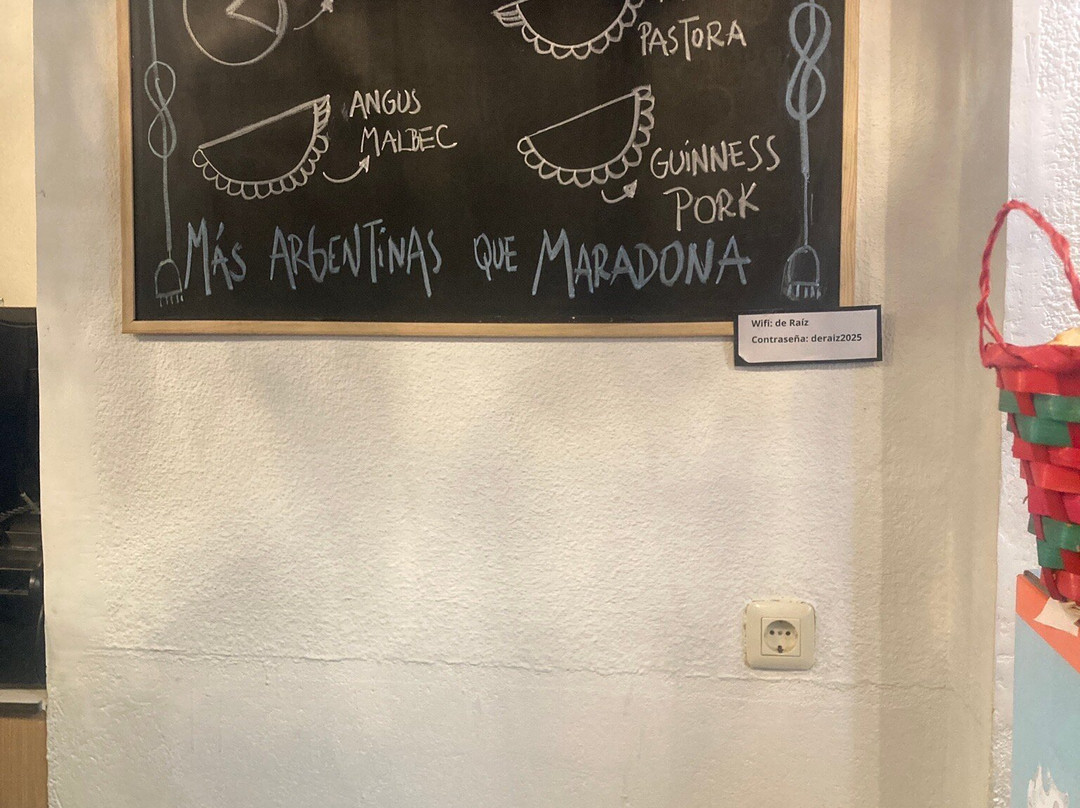 PASTORA
ANGUS
MALBEC
GUINNESS
PORK
MÁS ARGENTINAS QUE MARADONA
Wifi: de Raíz
Contraseña: deraiz2025